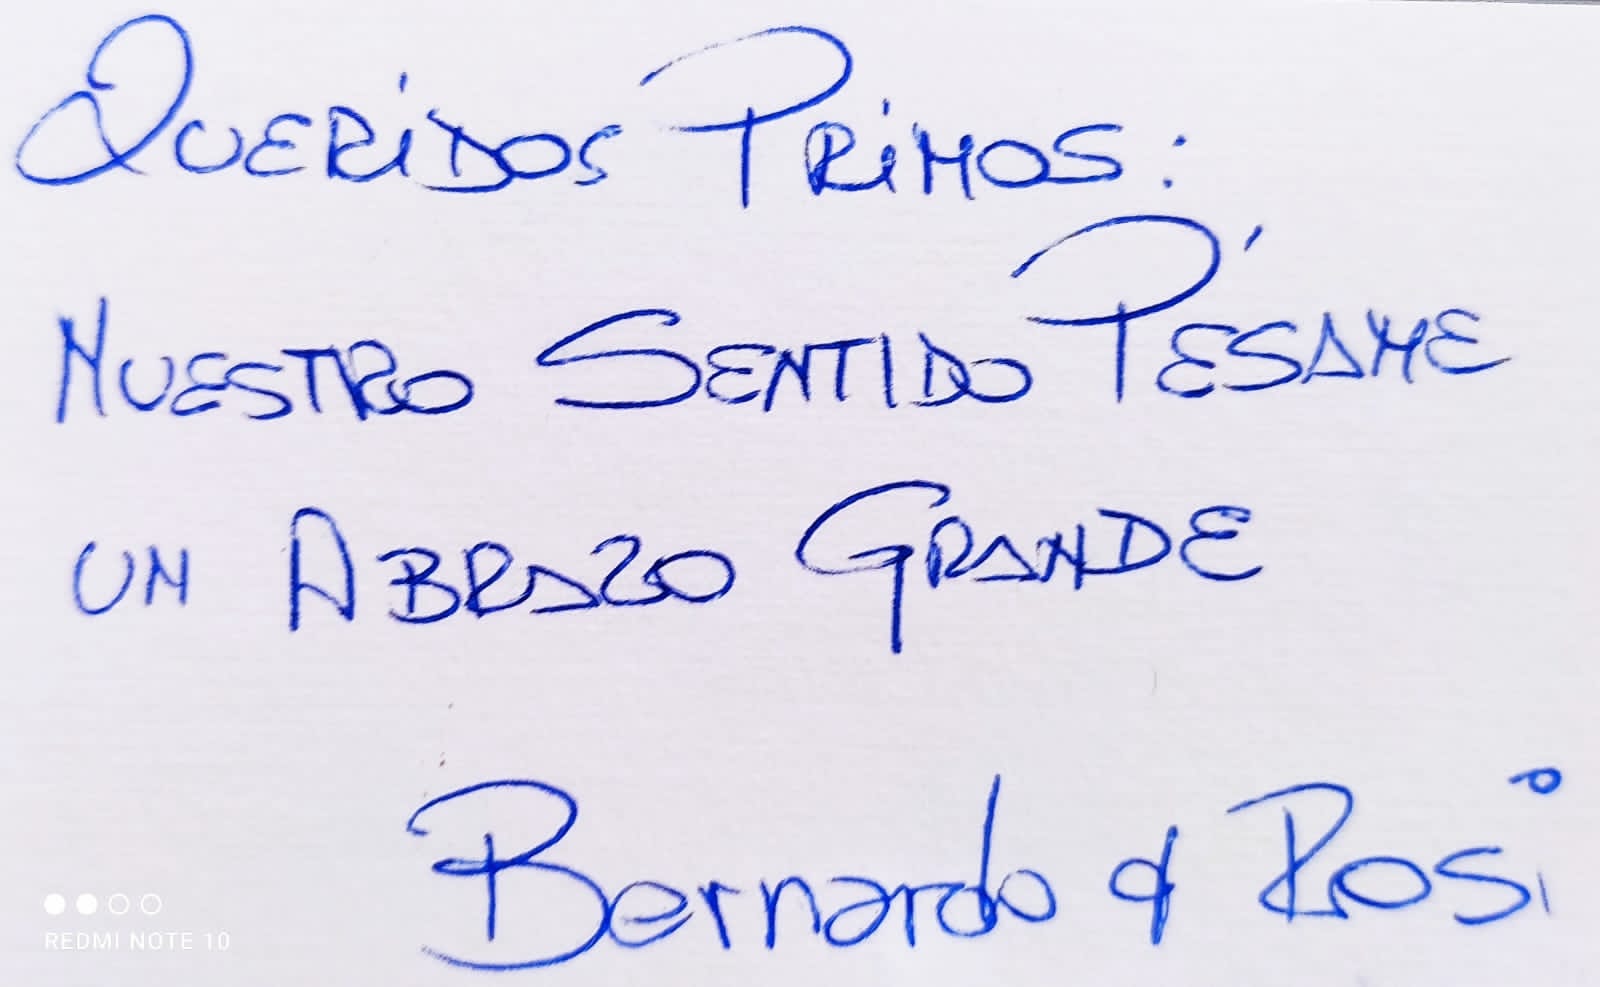 QUERiDOS PRiMOS:
NUESTRO SENTIDO PÉSAME
UN ABRAZO GRANDE
Bernardo & ROSi
REDMI NOTE 10